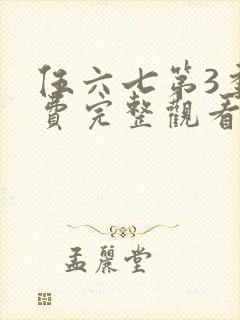 伍六七第3季
費完整觀看
孟麗堂